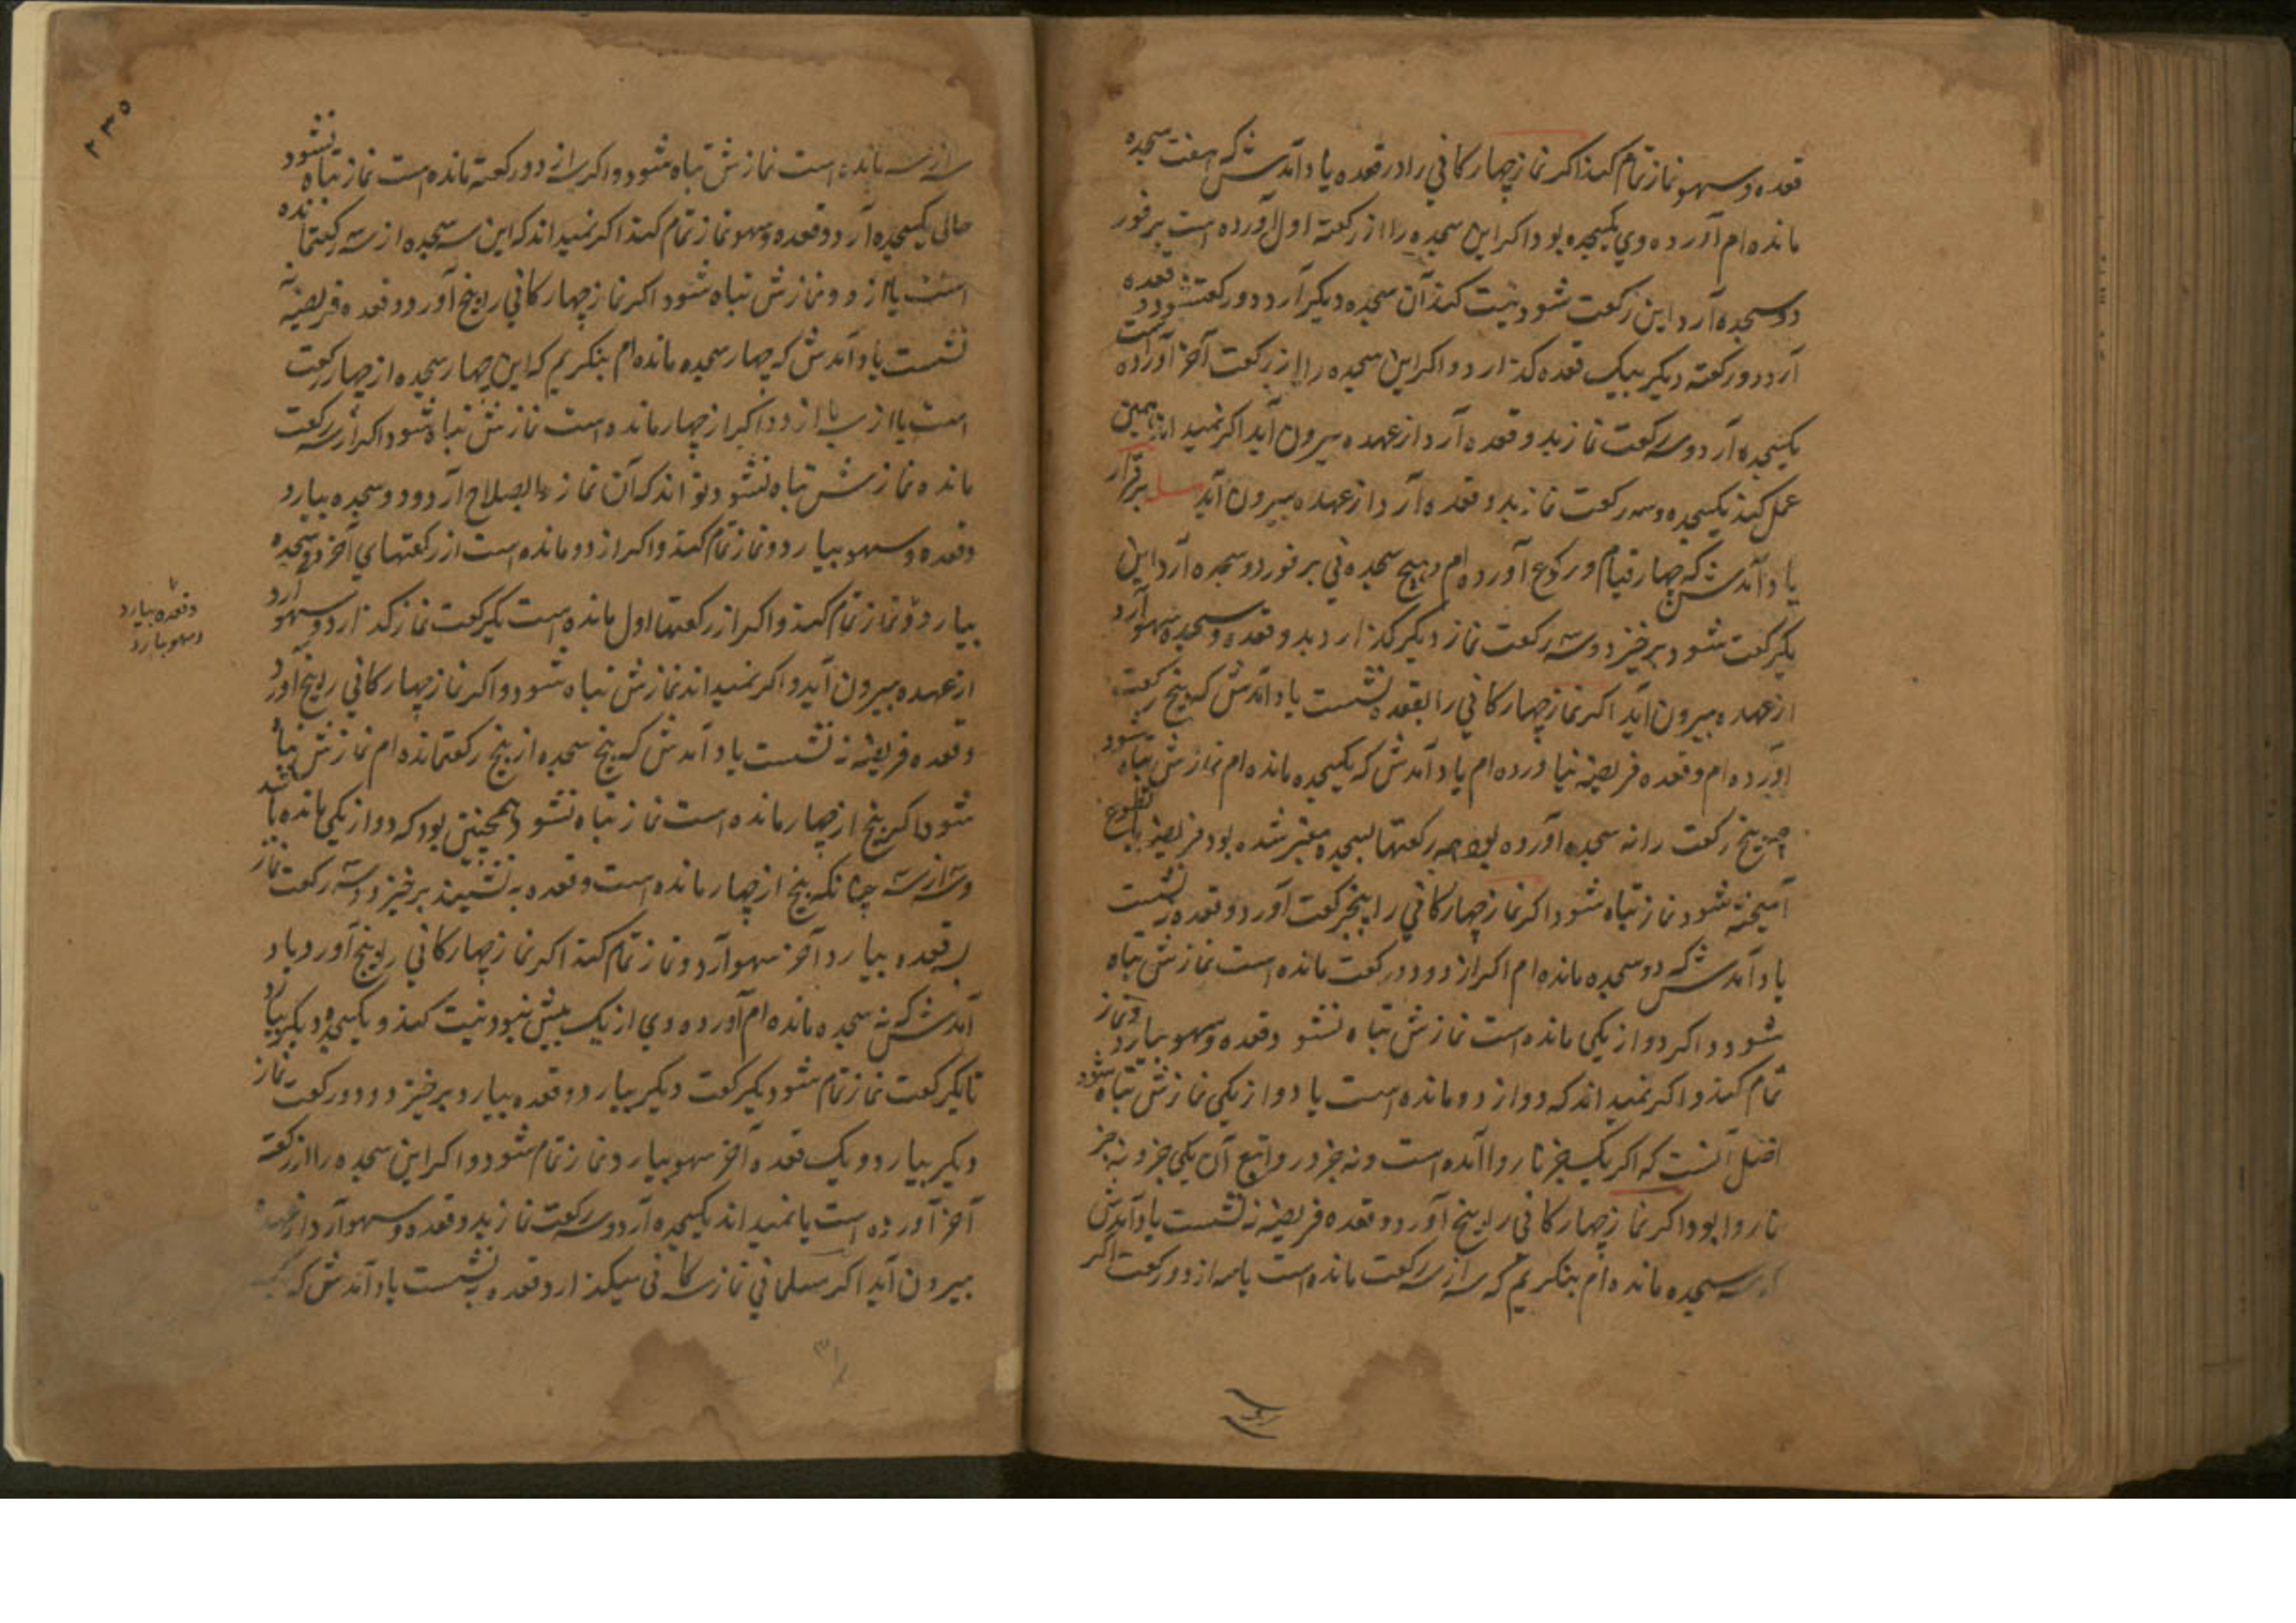 قعده و سهو نماز تمام کند اکر نماز چهارکانی را در قعده یاد آمدش که هفت سجده
مانده ام آورده وی یکسجده بود اکر این سجده را از رکعته اول آورده است بر فور
دو سجده آرد این رکعت شود نیت کند آن سجده دیکر آرد دو رکعت شود و قعده
آرد دو رکعته دیکر بیک قعده کذارد و اکر این سجده را از رکعت آخر آورده است
یکسجده آرد و سه رکعت نماز بدو قعده آرد از عهده بیرون آید اکر نمیداند همین
عمل کند یکسجده و سه رکعت نماز بدو قعده آرد از عهده بیرون آید
یاد آمدش که چهار قیام و رکوع آورده ام و هیچ سجده نی بر فور دو سجده آرد این
یکرکعت شود برخیزد و سه رکعت نماز دیکر کذارد بدو قعده و سجده سهو آرد
از عهده بیرون آید اکر نماز چهارکانی را بقعده نشست یاد آمدش که پنج رکعت
آورده ام و قعده فریضه نیاورده ام یاد آمدش که یکسجده مانده ام نمازش تباه شود
پنج رکعت را نه سجده آورده بود همه رکعتها بسجده معتبر شده بود فریضه با تطوع
آمیخته شود نماز تباه شود اکر نماز چهارکانی را پنجرکعت آورد و قعده نشست
یاد آمدش که دو سجده مانده ام اکر از دو دو رکعت مانده است نمازش تباه
شود و اکر دو از یکی مانده است نمازش تباه نشود و قعده و سهو بیارد و نماز
تمام کند و اکر نمیداند که دو از دو مانده است یا دو از یکی نمازش تباه شود
اصل آنست که اکر یک جز ناروا آمده است و نه جز در روا تبع آن یکی جز و نه جز
ناروا بود اکر نماز چهارکانی را پنج آورد و قعده فریضه نه نشست یاد آمدش
که سه سجده مانده ام بنکریم که سه از سه رکعت مانده است یا سه از دو رکعت اکر
۲۳۵
سه از سه مانده است نمازش تباه شود و اکر سه از دو رکعته مانده است نماز تباه نشود
حالی یکسجده آرد و قعده و سهو نماز تمام کند اکر نمیداند که این سه سجده از سه رکعت مانده
است یا از دو نمازش تباه شود اکر نماز چهارکانی را پنج آورد و قعده فریضه نه
نشست یاد آمدش که چهار سجده مانده ام بنکریم که این چهار سجده از چهار رکعت
است یا از سه یا از دو اکر از چهار مانده است نمازش تباه شود اکر از سه رکعت
مانده نمازش تباه نشود تواند که آن نماز را بصلاح آرد و دو سجده بیارد
و قعده و سهو بیارد و نماز تمام کند و اکر از دو مانده است از رکعتهای آخر دو سجده
بیارد و نماز تمام کند و اکر از رکعتها اول مانده است یکرکعت نماز کذارد و سهو آرد
از عهده بیرون آید و اکر نمیداند نمازش تباه شود و اکر نماز چهارکانی را پنج آورد
و قعده فریضه نه نشست یاد آمدش که پنج سجده از پنج رکعت مانده ام نمازش تباه
شود اکر پنج از چهار مانده است نماز تباه نشود و همچنین بود که دو از یکی مانده باشد
و سه از سه چنانکه پنج از چهار مانده است و قعده به نشیند برخیزد و سه رکعت نماز
بقعده بیارد آخر سهو آرد و نماز تمام کند اکر نماز چهارکانی را پنج آورد یاد
آمدش که نه سجده مانده ام آورده وی از یک بیش نبود نیت کند و یکسجده دیکر بیارد
تا یکرکعت نماز تمام شود یکرکعت دیکر بیارد و قعده بیارد برخیزد و دو رکعت نماز
دیکر بیارد و یک قعده آخر سهو بیارد نماز تمام شود و اکر این سجده را از رکعته
آخر آورده است یا نمیداند یکسجده آرد و سه رکعت نماز بدو قعده و سهو آرد از عهده
بیرون آید اکر مسلمانی نماز سه کانی میکذارد قعده به نشست یاد آمدش که
و قعده بیارد
و سهو بیارد